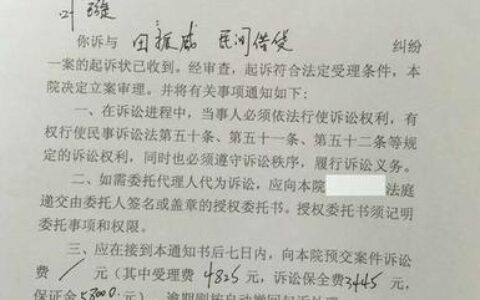 叶璇
你诉与 田振威 民间借贷 纠纷
一案的起诉状已收到。经审查，起诉符合法定受理条件，本
院决定立案审理。并将有关事项通知如下：
一、在诉讼进程中，当事人必须依法行使诉讼权利，有
权行使民事诉讼法第五十条、第五十一条、第五十二条等规
定的诉讼权利，同时也必须遵守诉讼秩序，履行诉讼义务。
二、如需委托代理人代为诉讼，应向本院 法庭
递交由委托人签名或盖章的授权委托书。授权委托书须记明
委托事项和权限。
三、应在接到本通知书后七日内，向本院预交案件诉讼
费 / 元（其中受理费 4825 元，诉讼保全费 3445 元，
保证金 58000 元），逾期则按自动撤回起诉处理